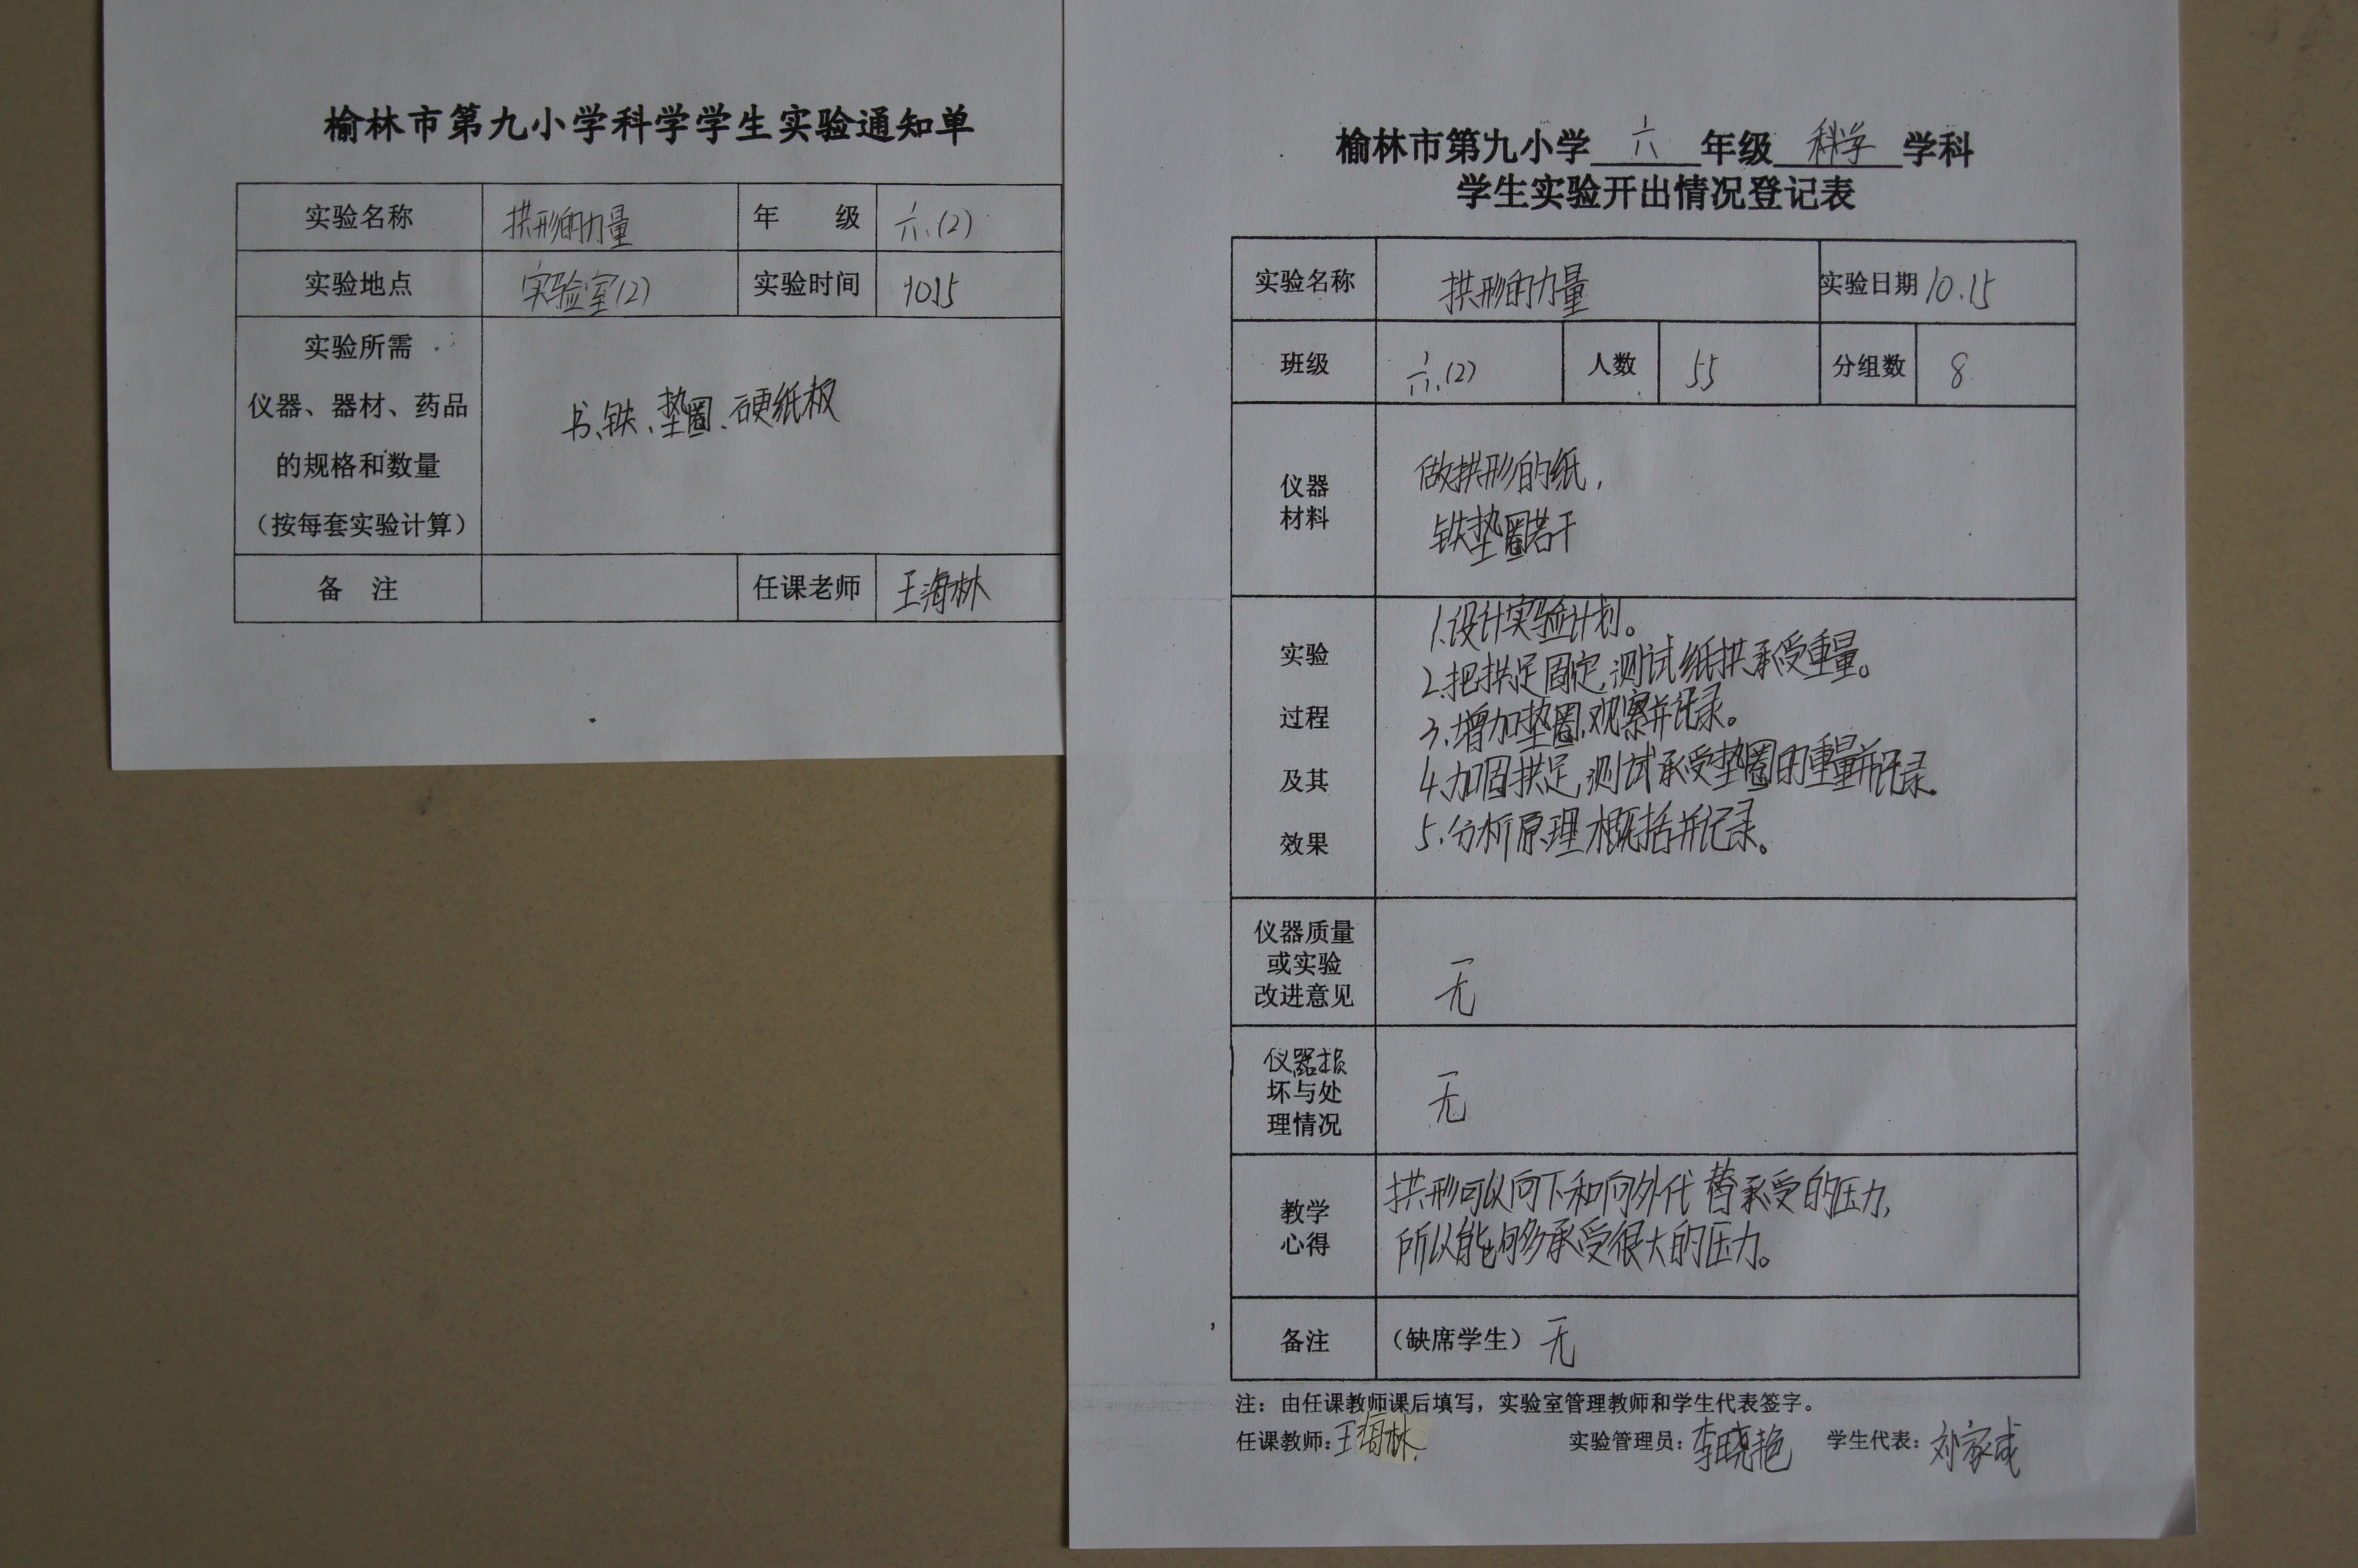 榆林市第九小学科学学生实验通知单
实验名称 拱形的力量 年 级 六.(2)
实验地点 实验室(2) 实验时间 1015
实验所需
仪器、器材、药品
的规格和数量
(按每套实验计算)
书、铁、垫圈、硬纸板
备 注 任课老师 王海林
榆林市第九小学 六 年级 科学 学科
学生实验开出情况登记表
实验名称 拱形的力量 实验日期 10.15
班级 六.(2) 人数 55 分组数 8
仪器
材料
做拱形的纸,
铁垫圈若干
实验
过程
及其
效果
1.设计实验计划。
2.把拱足固定,测试纸拱承受重量。
3.增加垫圈,观察并记录。
4.加固拱足,测试承受垫圈的重量并记录。
5.分析原理概括并记录。
仪器质量
或实验
改进意见
无
仪器损
坏与处
理情况
无
教学
心得
拱形可以向下和向外代替承受的压力,
所以能够承受很大的压力。
备注 (缺席学生) 无
注:由任课教师课后填写,实验室管理教师和学生代表签字。
任课教师:王海林 实验管理员:李晓艳 学生代表:刘家成